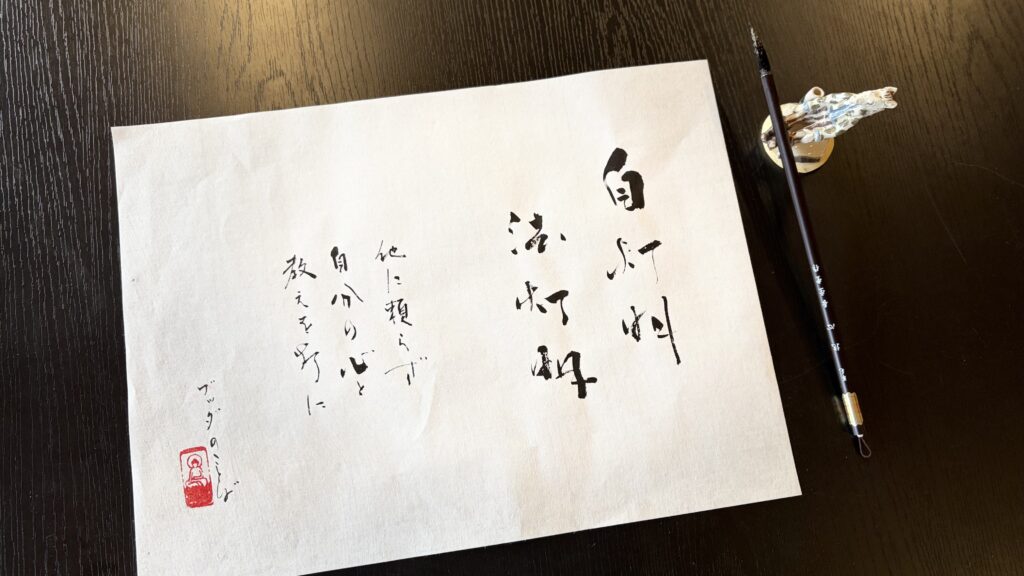 自灯明
法灯明
他に頼らず
自分の心と
教えを に
ブッダのことば